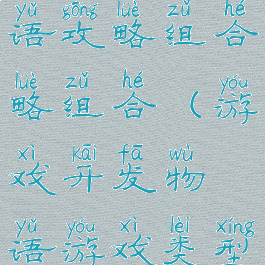 yǔ gōng luè zǔ hé
语攻略组合
luè zǔ hé yóu
略组合（游
xì kāi fā wù
戏开发物
yǔ yóu xì lèi xíng
语游戏类型